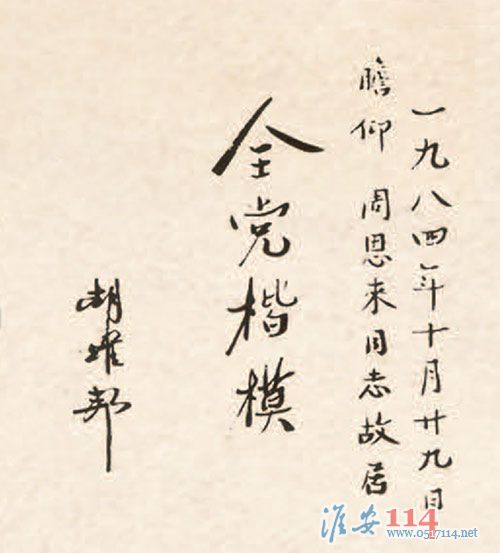 一九八四年十月廿九日
瞻仰 周恩来同志故居
全党楷模
胡耀邦
淮安114
www.0517114.net